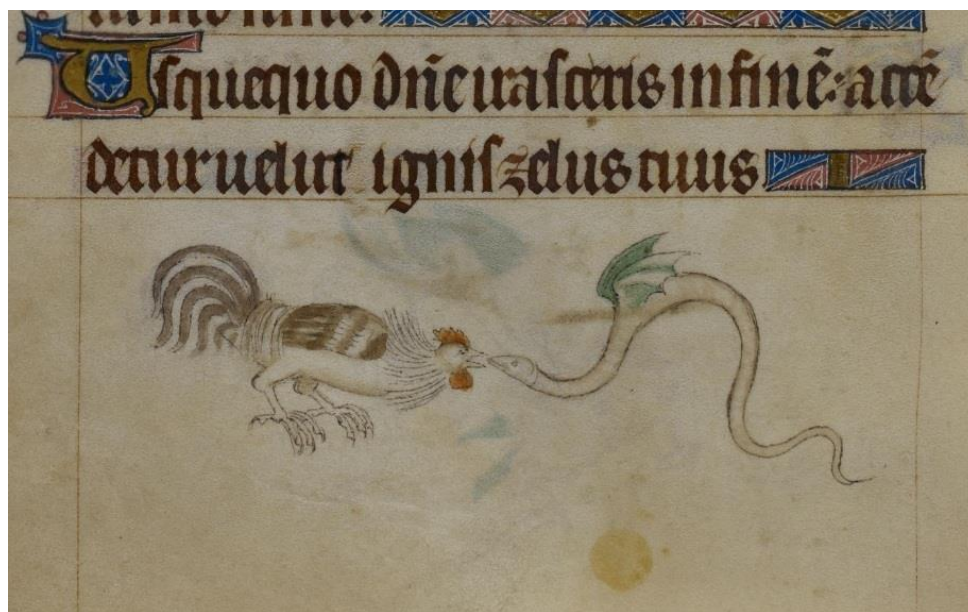 Usquequo dñe irasceris in finẽ: accẽ
detur uelut ignis zelus tuus